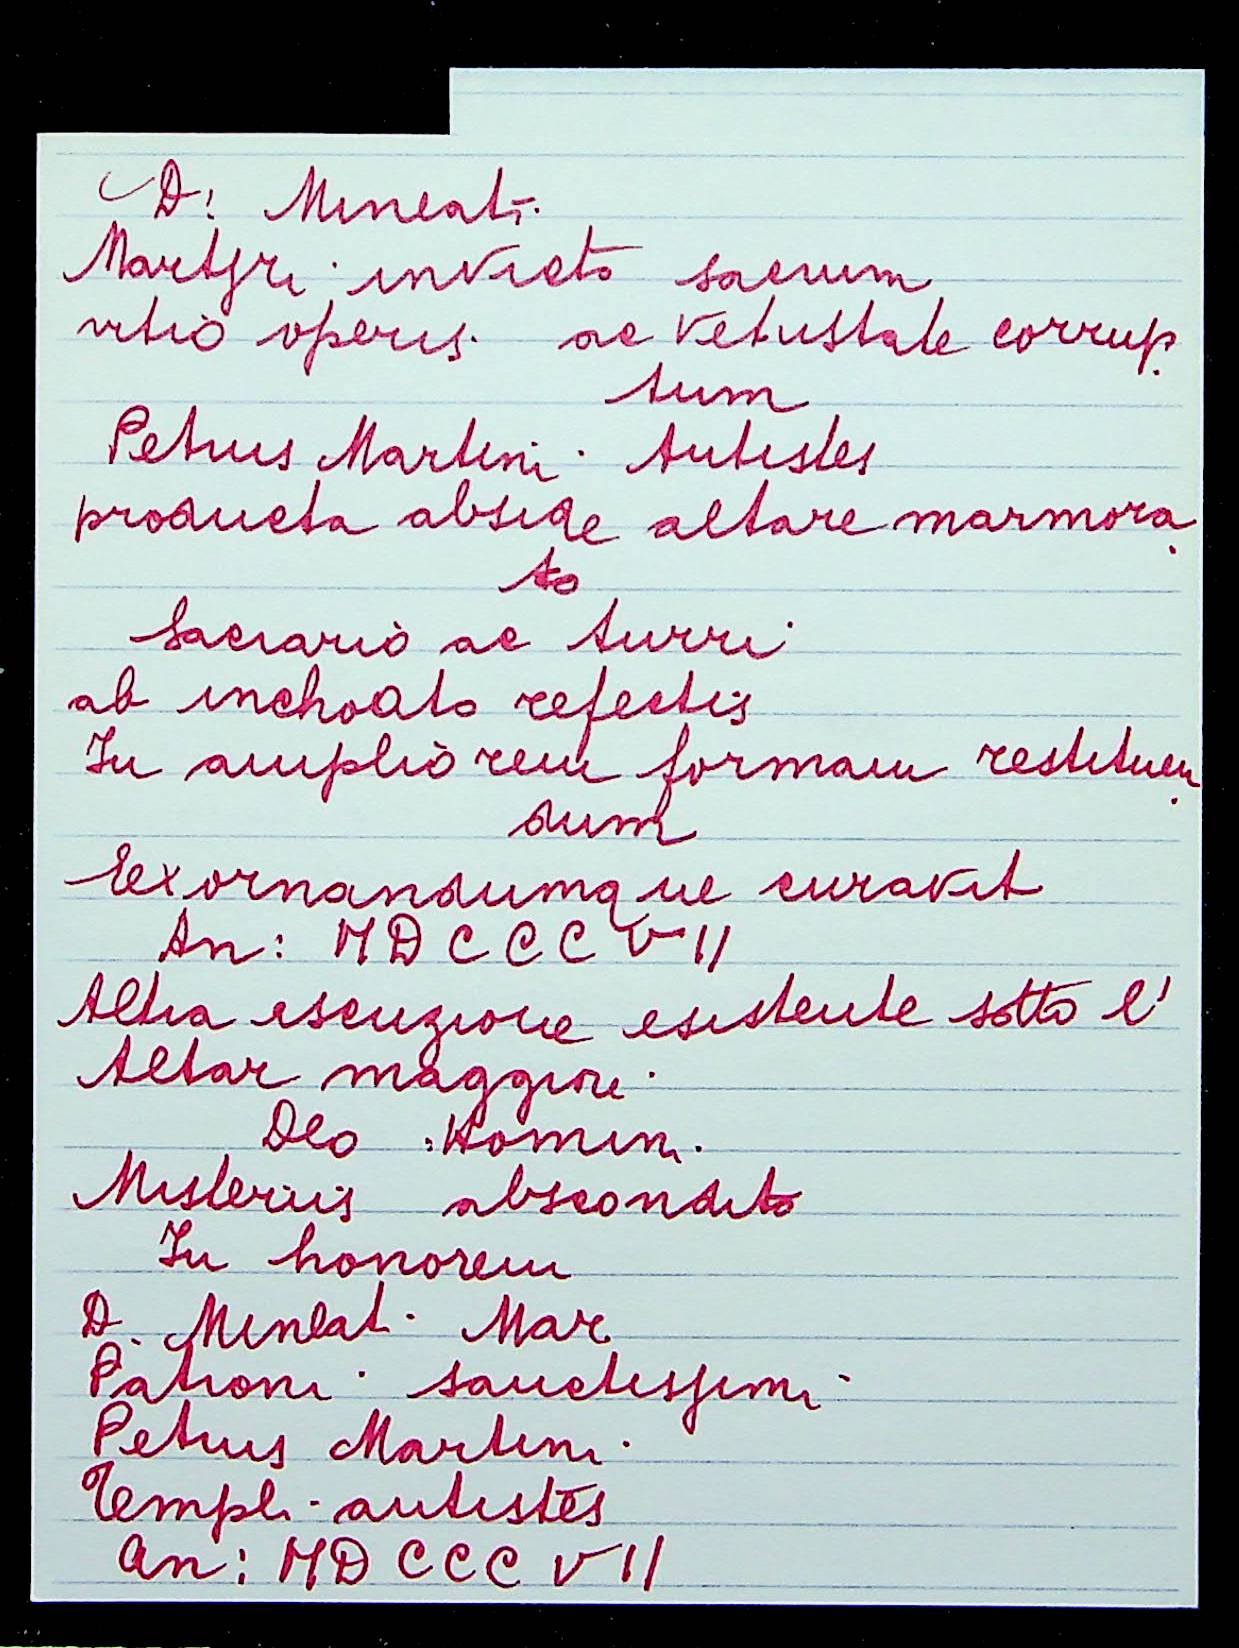 D: Mineati.
Martyri invicto sacrum
vitio operis. ac vetustate corrup.
tum
Petrus Martini. Antistes
producta abside altare marmora.
to
Sacrario ac turri
ab inchoato refectis
In ampliorem formam restituen.
dum
Exornandumque curavit
An: MDCCCVII
Altra iscrizione esistente sotto l'
Altar maggiore.
Deo Homin.
Misteriis abscondito
In honorem
D. Mineat. Mar
Patroni. sanctissimi.
Petrus Martini.
Templi. antistes
An: MDCCCVII